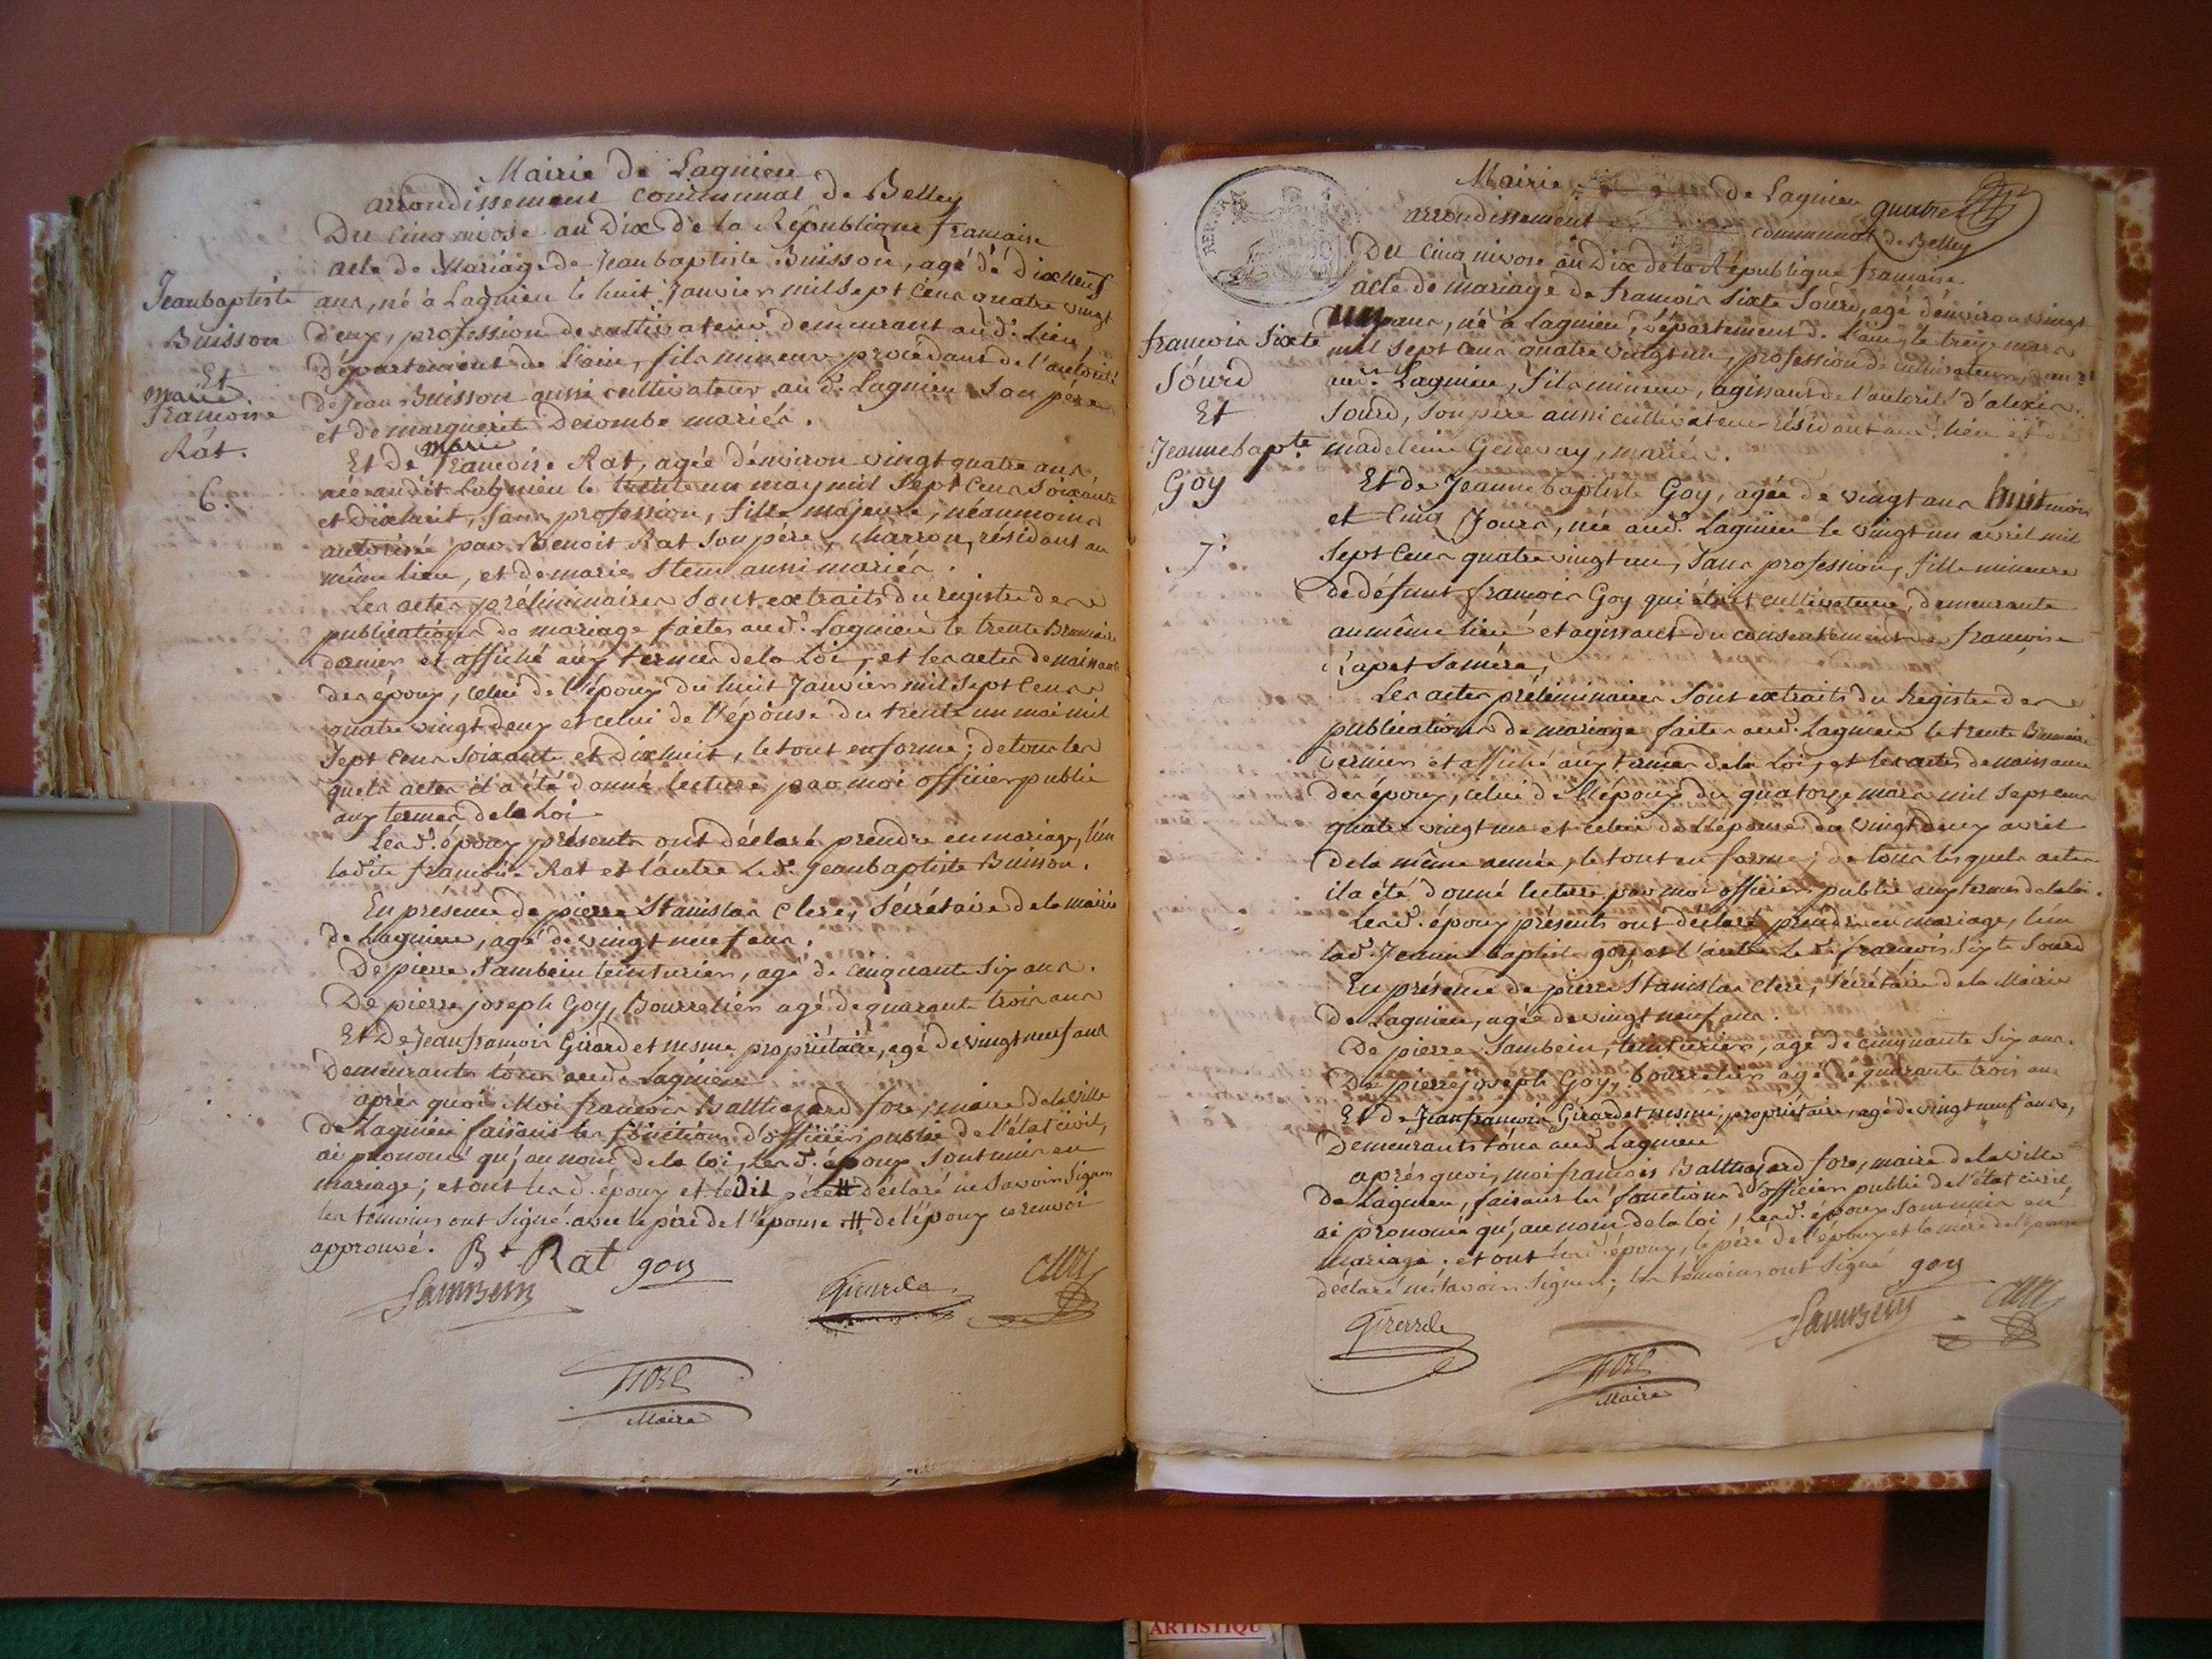 Mairie de Lagnieu
arrondissement communal de Belley
Du cinq nivose an Dix de la République française
acte de Mariage de Jean baptiste Buisson, agé de dixneuf
Jeanbaptiste
Buisson
Et
marie
françoise
Rat.
6.
ans, né à Lagnieu le huit Janvier mil sept cens quatre vingt
deux, profession de cultivateur demeurant aud. Lieu,
département de l'ain, fils mineur procédant de l'autorité
de Jean Buisson aussi cultivateur aud. Lagnieu son père
et de marguerite Decombe mariés.
Et de marie françoise Rat, agée d'environ vingt quatre ans
née audit Lagnieu le trente un may mil sept cens soixante
et dixhuit, sans profession, fille majeure, néanmoins
autorisée par Benoit Rat son père, charron, résidant au
même lieu, et de marie aussi mariés.
Les actes préliminaires sont extraits du registre des
publications de mariage faites aud. Lagnieu le trente Brumaire
dernier et affiché aux termes de la Loi, et les actes de naissance
des époux, celui de l'époux du huit Janvier mil sept cens
quatre vingt deux et celui de l'épouse du trente un mai mil
sept cens soixante et dixhuit, le tout en forme; de tous les
quels actes il a été donné lecture par moi officier public
aux termes de la Loi
Lesd. époux présents ont déclaré prendre en mariage, l'un
ladite françoise Rat et l'autre Led. Jeanbaptiste Buisson.
En présence de pierre Stanislas Clerc, Sécrétaire de la mairie
de Lagnieu, agé de vingt neuf ans.
De pierre Sambein teinturier, agé de cinquante six ans.
De pierre joseph Goy, Bourrelier agé de quarante trois ans
Et De Jean françois Girard et nesme propriétaire, agé de vingt neuf ans
Demeurants tous aud. Lagnieu
après quoi Moi françois Balthazard fore, maire de la Ville
de Lagnieu faisant les fonctions d'officier public de l'état civil,
ai prononcé qu'au nom de la loi, lesd. époux sont unis en
mariage; et ont lesd. époux et ledit père # déclaré ne savoir signer
les témoins ont signé avec le père de l'épouse # de l'époux ce renvoi
approuvé. B Rat goy
Sambein Girard Clerc
fore
Maire
Mairie de Lagnieu quatre
arrondissement communal de Belley
Du cinq nivose an Dix de la République française
acte de mariage de françois Sixte Sourd, agé d'environ vingt
françois Sixte
Sourd
Et
Jeanne bapte.
Goy
7.
un ans, né à Lagnieu, département de l'ain, le treize mars
mil sept cens quatre vingt un, profession de cultivateur,
aud. Lagnieu, fils mineur, agissant de l'autorité d'alexis
Sourd, son père aussi cultivateur résidant aud. lieu et de
madeleine Genevay, mariés.
Et de Jeanne baptiste Goy, agée de vingt ans huit mois
et cinq Jours, née aud. Lagnieu le vingt un avril mil
sept cens quatre vingt un, sans profession, fille mineure
de défunt françois Goy qui étoit cultivateur, demeurante
au même lieu et agissant du consentement de françoise
Rapet sa mère,
Les actes préliminaires sont extraits du Registre des
publications de mariage faites aud. Lagnieu le trente Brumaire
dernier et affiché aux termes de la Loi, et les actes de naissance
des époux, celui de l'époux du quatorze mars mil sept cens
quatre vingt un et celui de l'épouse du vingt deux avril
de la même année, le tout en forme; de tous lesquels actes
il a été donné lecture par moi officier public aux termes de la loi.
Lesd. époux présents ont déclaré prendre en mariage, l'un
lad. Jeanne baptiste goy, et l'autre Led. françois Sixte Sourd
En présence de pierre Stanislas Clerc, Sécrétaire de la Mairie
de Lagnieu, agé de vingt neuf ans.
De pierre Sambein, teinturier, agé de cinquante six ans.
De pierre joseph Goy, bourrelier agé de quarante trois ans
Et de Jean françois Girard et nesme, propriétaire, agé de vingt neuf ans,
Demeurants tous aud. Lagnieu
après quoi, moi françois Balthazard fore, maire de la ville
de Lagnieu, faisant les fonctions d'officier public de l'état civil,
ai prononcé qu'au nom de la loi, lesd. époux sont unis en
mariage; et ont lesd. époux, le père de l'époux et la mère de l'épouse
déclaré ne savoir signer; les témoins ont signé goy
Girard Sambein Clerc
fore
Maire
ARTISTIQU